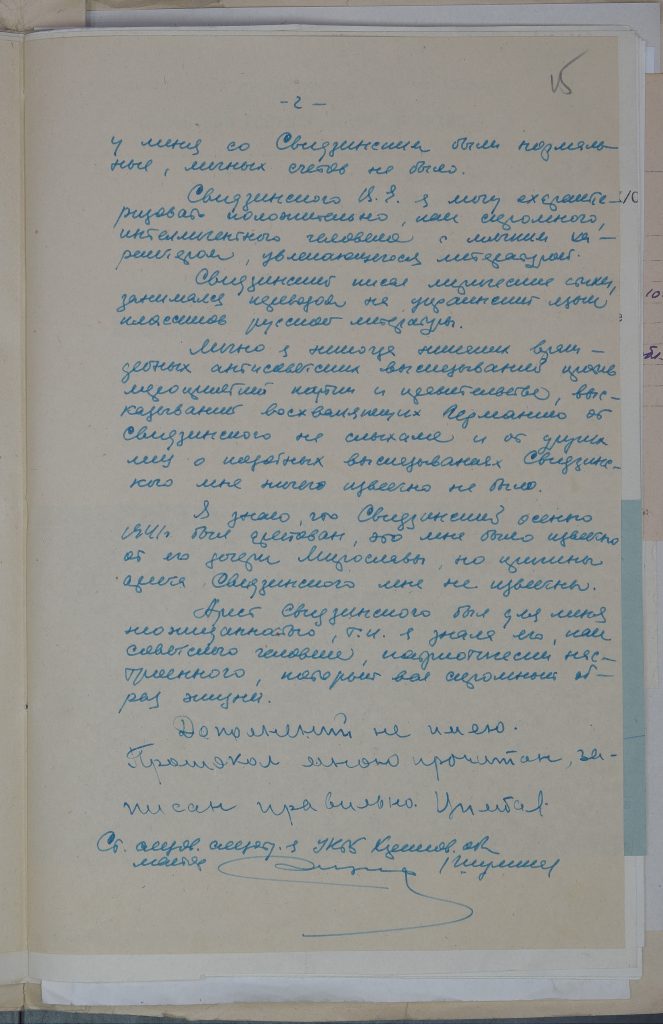 15
- 2 -
у меня со Свидзинским были нормаль-
ные, личных счетов не было.
Свидзинского В. Е. я могу охаракте-
ризовать положительно, как скромного,
интеллигентного человека с мягким ха-
рактером, увлекающегося литературой.
Свидзинский писал лирические стихи,
занимался переводом на украинский язык
классиков русской литературы.
Лично я никогда никаких враж-
дебных антисоветских высказываний против
мероприятий партии и правительства, выс-
казываний восхваляющих Германию от
Свидзинского не слыхала и от других
лиц о подобных высказываниях Свидзинс-
кого мне ничего известно не было.
Я знаю, что Свидзинский осенью
1941г был арестован, это мне было известно
от его дочери Мирославы, но причины
ареста Свидзинского мне не известны.
Арест Свидзинского был для меня
неожиданностью, т.к. я знала его, как
советского человека, патриотически нас-
троенного, который вел скромный об-
раз жизни.
Дополнений не имею.
Протокол мною прочитан, за-
писан правильно.
Ст. следов. следотд-я УКГБ Харьков. обл